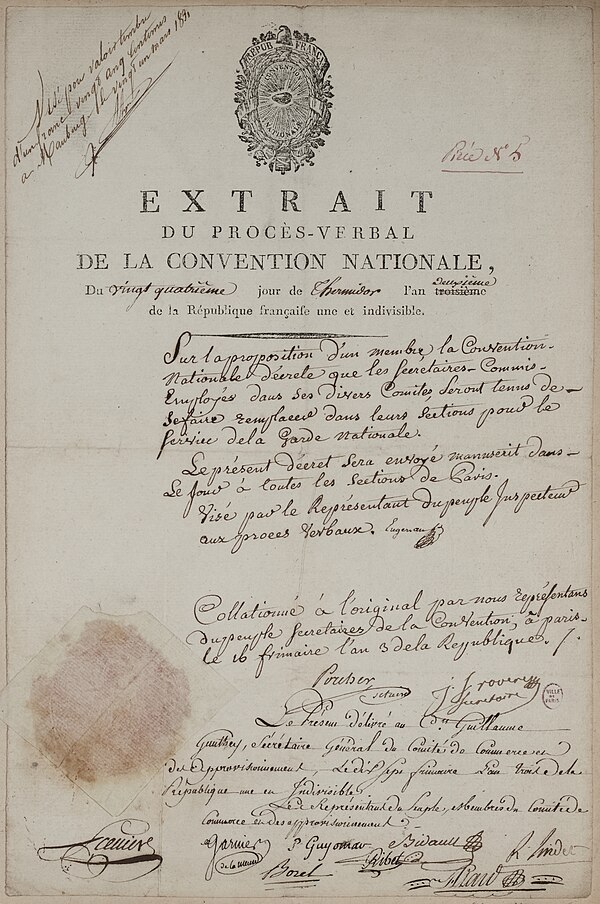 Visé pour valoir timbre
d'un franc vingt cinq centimes
a Maubeuge le vingt un mars 18
RÉPUB. FRANÇ.
CONVENTION
NATIONALE
Pièce N° 5
EXTRAIT
DU PROCÈS-VERBAL
DE LA CONVENTION NATIONALE,
deuxième
Du vingt quatrième jour de Thermidor l'an troisième
de la République françaiſe une et indivisible.
Sur la proposition d'un membre la Convention
Nationale décrete que les secretaires-Commis-
Employés dans ses divers Comités seront tenus de
se faire remplacer dans leurs sections pour le
service de la Garde Nationale.
Le présent décret sera envoyé manuscrit dans
le jour à toutes les sections de Paris.
Visé par le Représentant du peuple Inspecteur
aux procès verbaux.
Collationné à l'original par nous représentans
du peuple secretaires de la Convention, à paris
le 16 frimaire l'an 3 de la République.
VILLE DE PARIS
Le Présent délivré au Cen Guillaume
Secrétaire Général du Comité de Commerce et
des approvisionnement, Le dix sept frimaire L'an trois de la
République une et Indivisible
Les Représentants du Peuple, Membres du Comité de
Commerce et des approvisionnement
Garnier P. Guyomar Bidault R. Lindet
Borel Ribet Piard